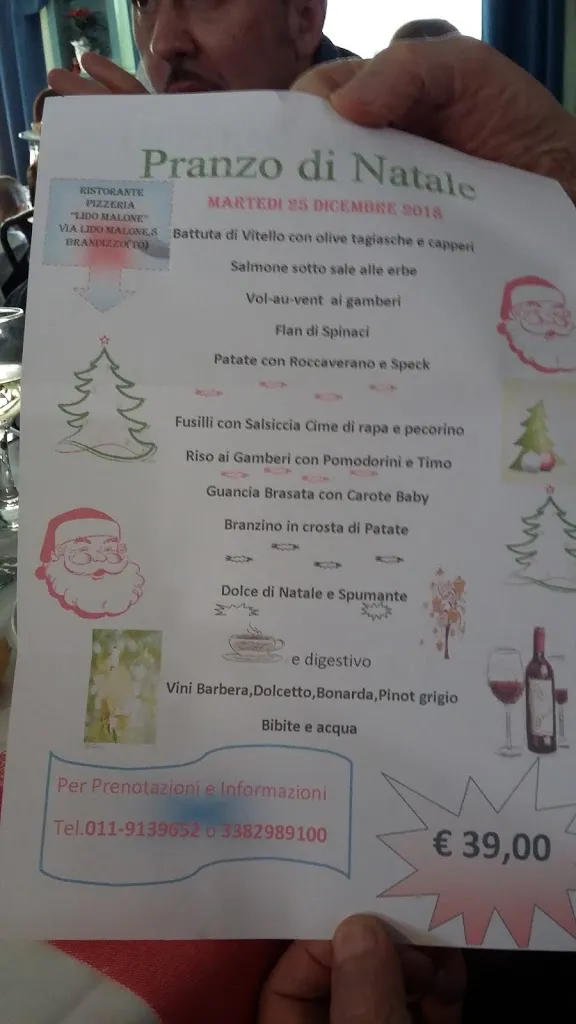 Pranzo di Natale
MARTEDI 25 DICEMBRE 2018
RISTORANTE
PIZZERIA
"LIDO MALONE"
VIA LIDO MALONE,8
BRANDIZZO(TO)
Battuta di Vitello con olive tagiasche e capperi
Salmone sotto sale alle erbe
Vol-au-vent ai gamberi
Flan di Spinaci
Patate con Roccaverano e Speck
Fusilli con Salsiccia Cime di rapa e pecorino
Riso ai Gamberi con Pomodorini e Timo
Guancia Brasata con Carote Baby
Branzino in crosta di Patate
Dolce di Natale e Spumante
e digestivo
Vini Barbera,Dolcetto,Bonarda,Pinot grigio
Bibite e acqua
Per Prenotazioni e Informazioni
Tel.011-9139652 o 3382989100
€ 39,00